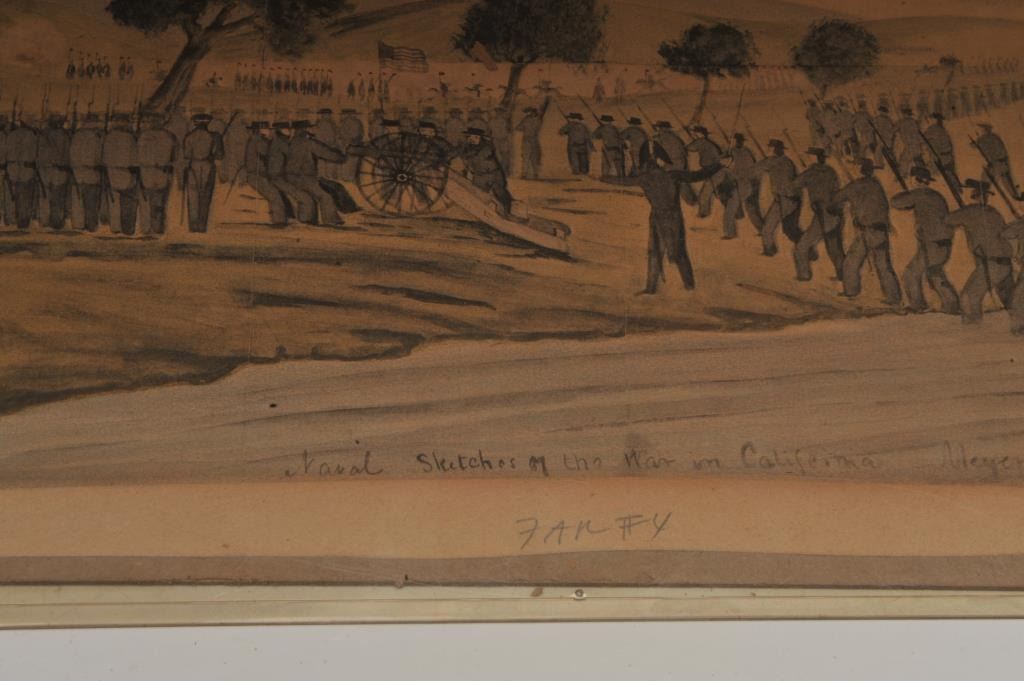 Naval Sketches of the War in California Meyer